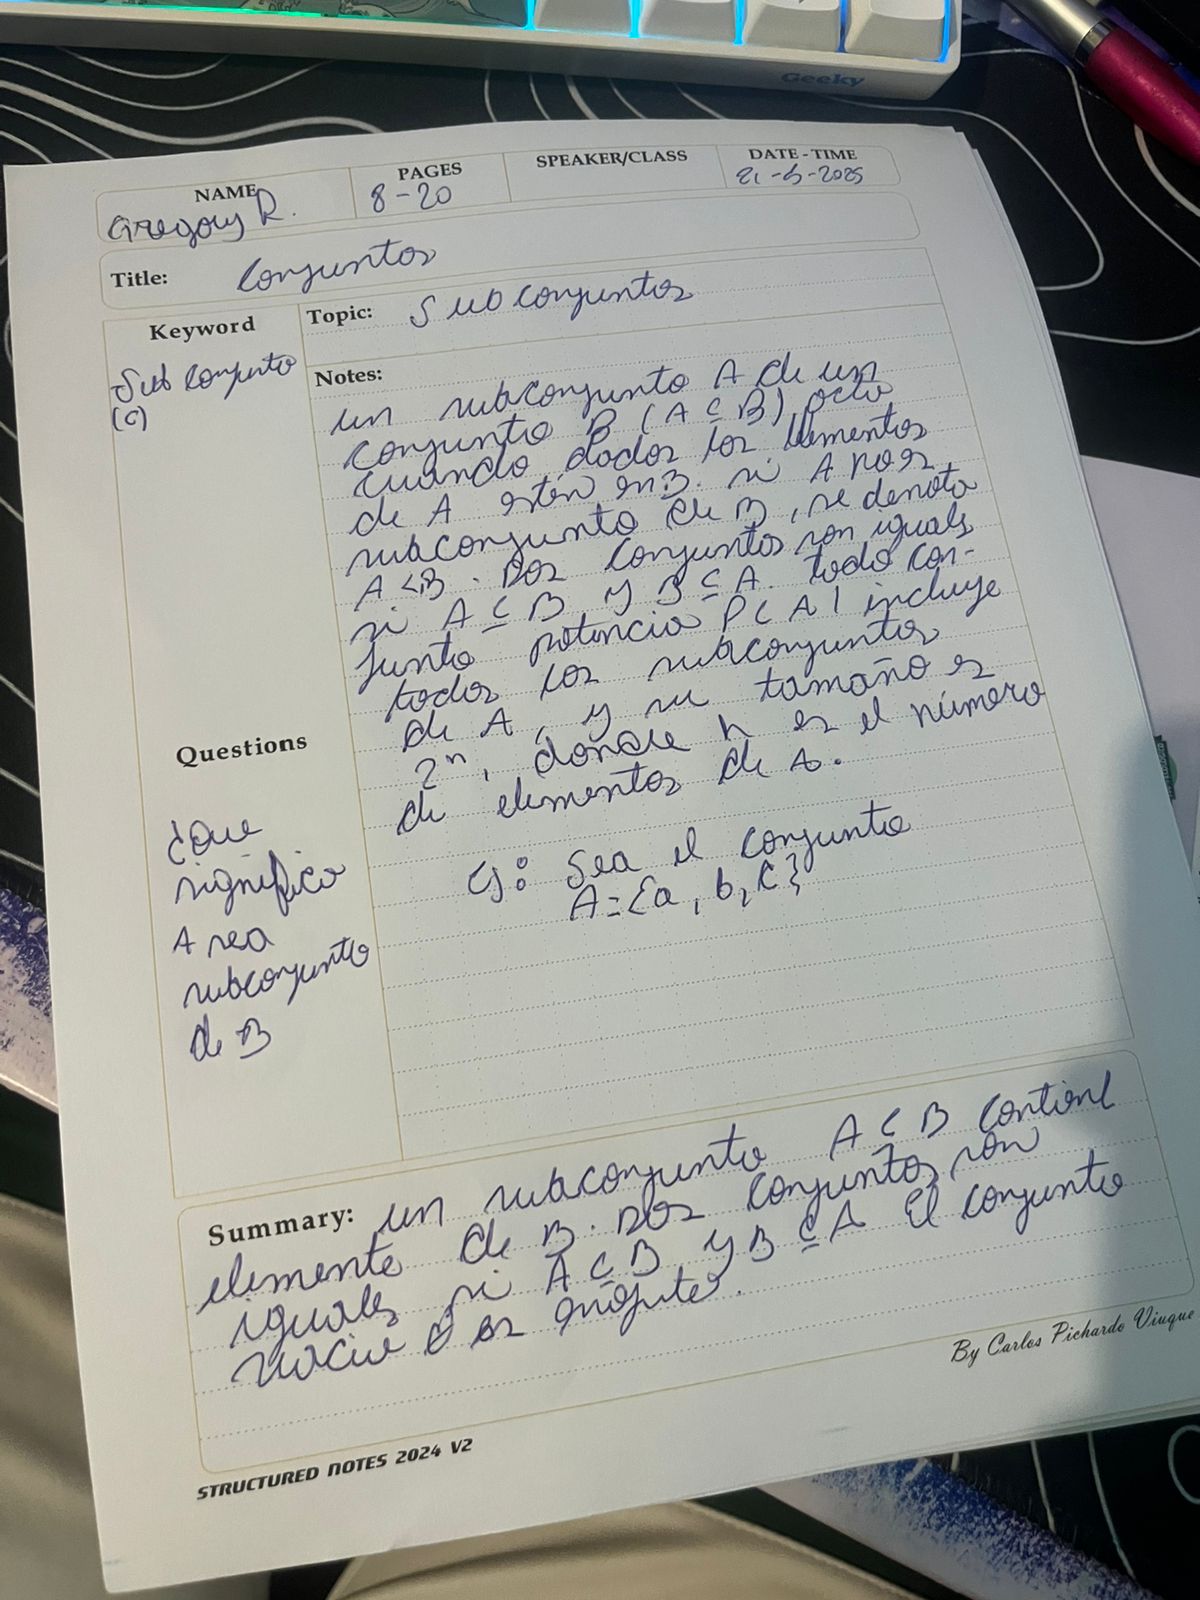 Geeky
NAME
Gregory R.
PAGES
8-20
SPEAKER/CLASS
DATE-TIME
21-5-2025
Title: Conjuntos
Keyword
Subconjunto
(C)
Topic: Subconjuntos
Notes:
un subconjunto A de un
conjunto B (A ⊆ B)
cuando dodos los elementos
de A estén en B. si A no es
subconjunto de B, se denota
A ⊄ B. Dos conjuntos son iguals
si A ⊆ B y B ⊆ A. todo con-
junto potencia P(A) incluye
todos los subconjuntos
de A, y su tamaño es
2ⁿ, donde n es el número
de elementos de A.
Ej: Sea el conjunto
A={a, b, c}
Questions
¿Que
significa
A sea
subconjunto
de B
Summary: un subconjunto A ⊆ B contiene
elemente de B. Dos conjuntos son
iguales si A ⊆ B y B ⊆ A El conjunto
vacio es
By Carlos Pichardo Viuque
STRUCTURED NOTES 2024 V2